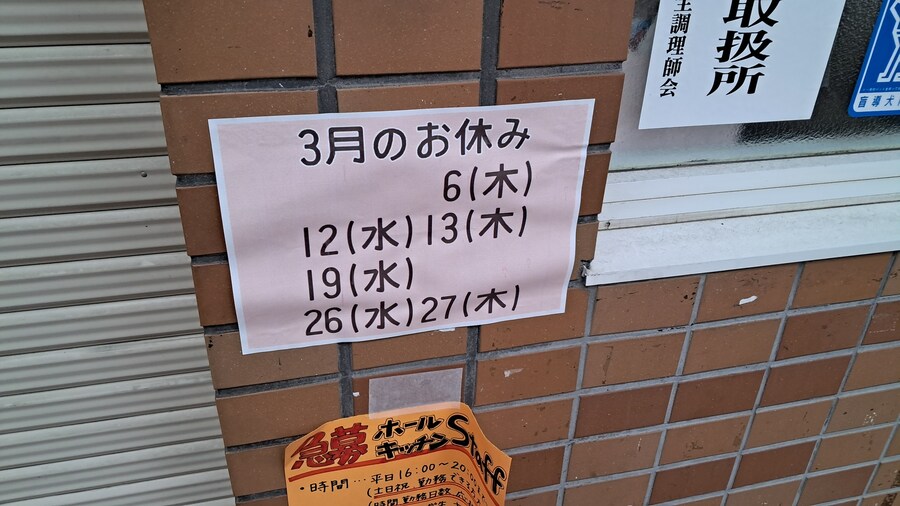 3月のお休み
6(木)
12(水)13(木)
19(水)
26(水)27(木)
取扱所
調理師会
盲導犬
急募 ホール キッチン Staff
・時間…平日16:00~20:0
(土日祝 勤務でき
(時間 勤務日数